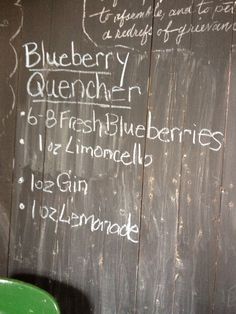 to assemble, and to pe
a redress of grievan
Blueberry
Quencher
• 6-8 Fresh Blueberries
• 1 oz Limoncello
• 1oz Gin
• 1 oz Lemonade